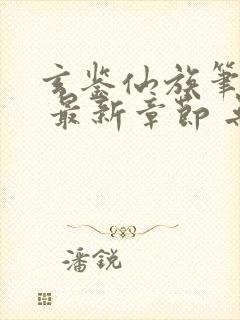 玄鉴仙族笔
最新章节
潘锐